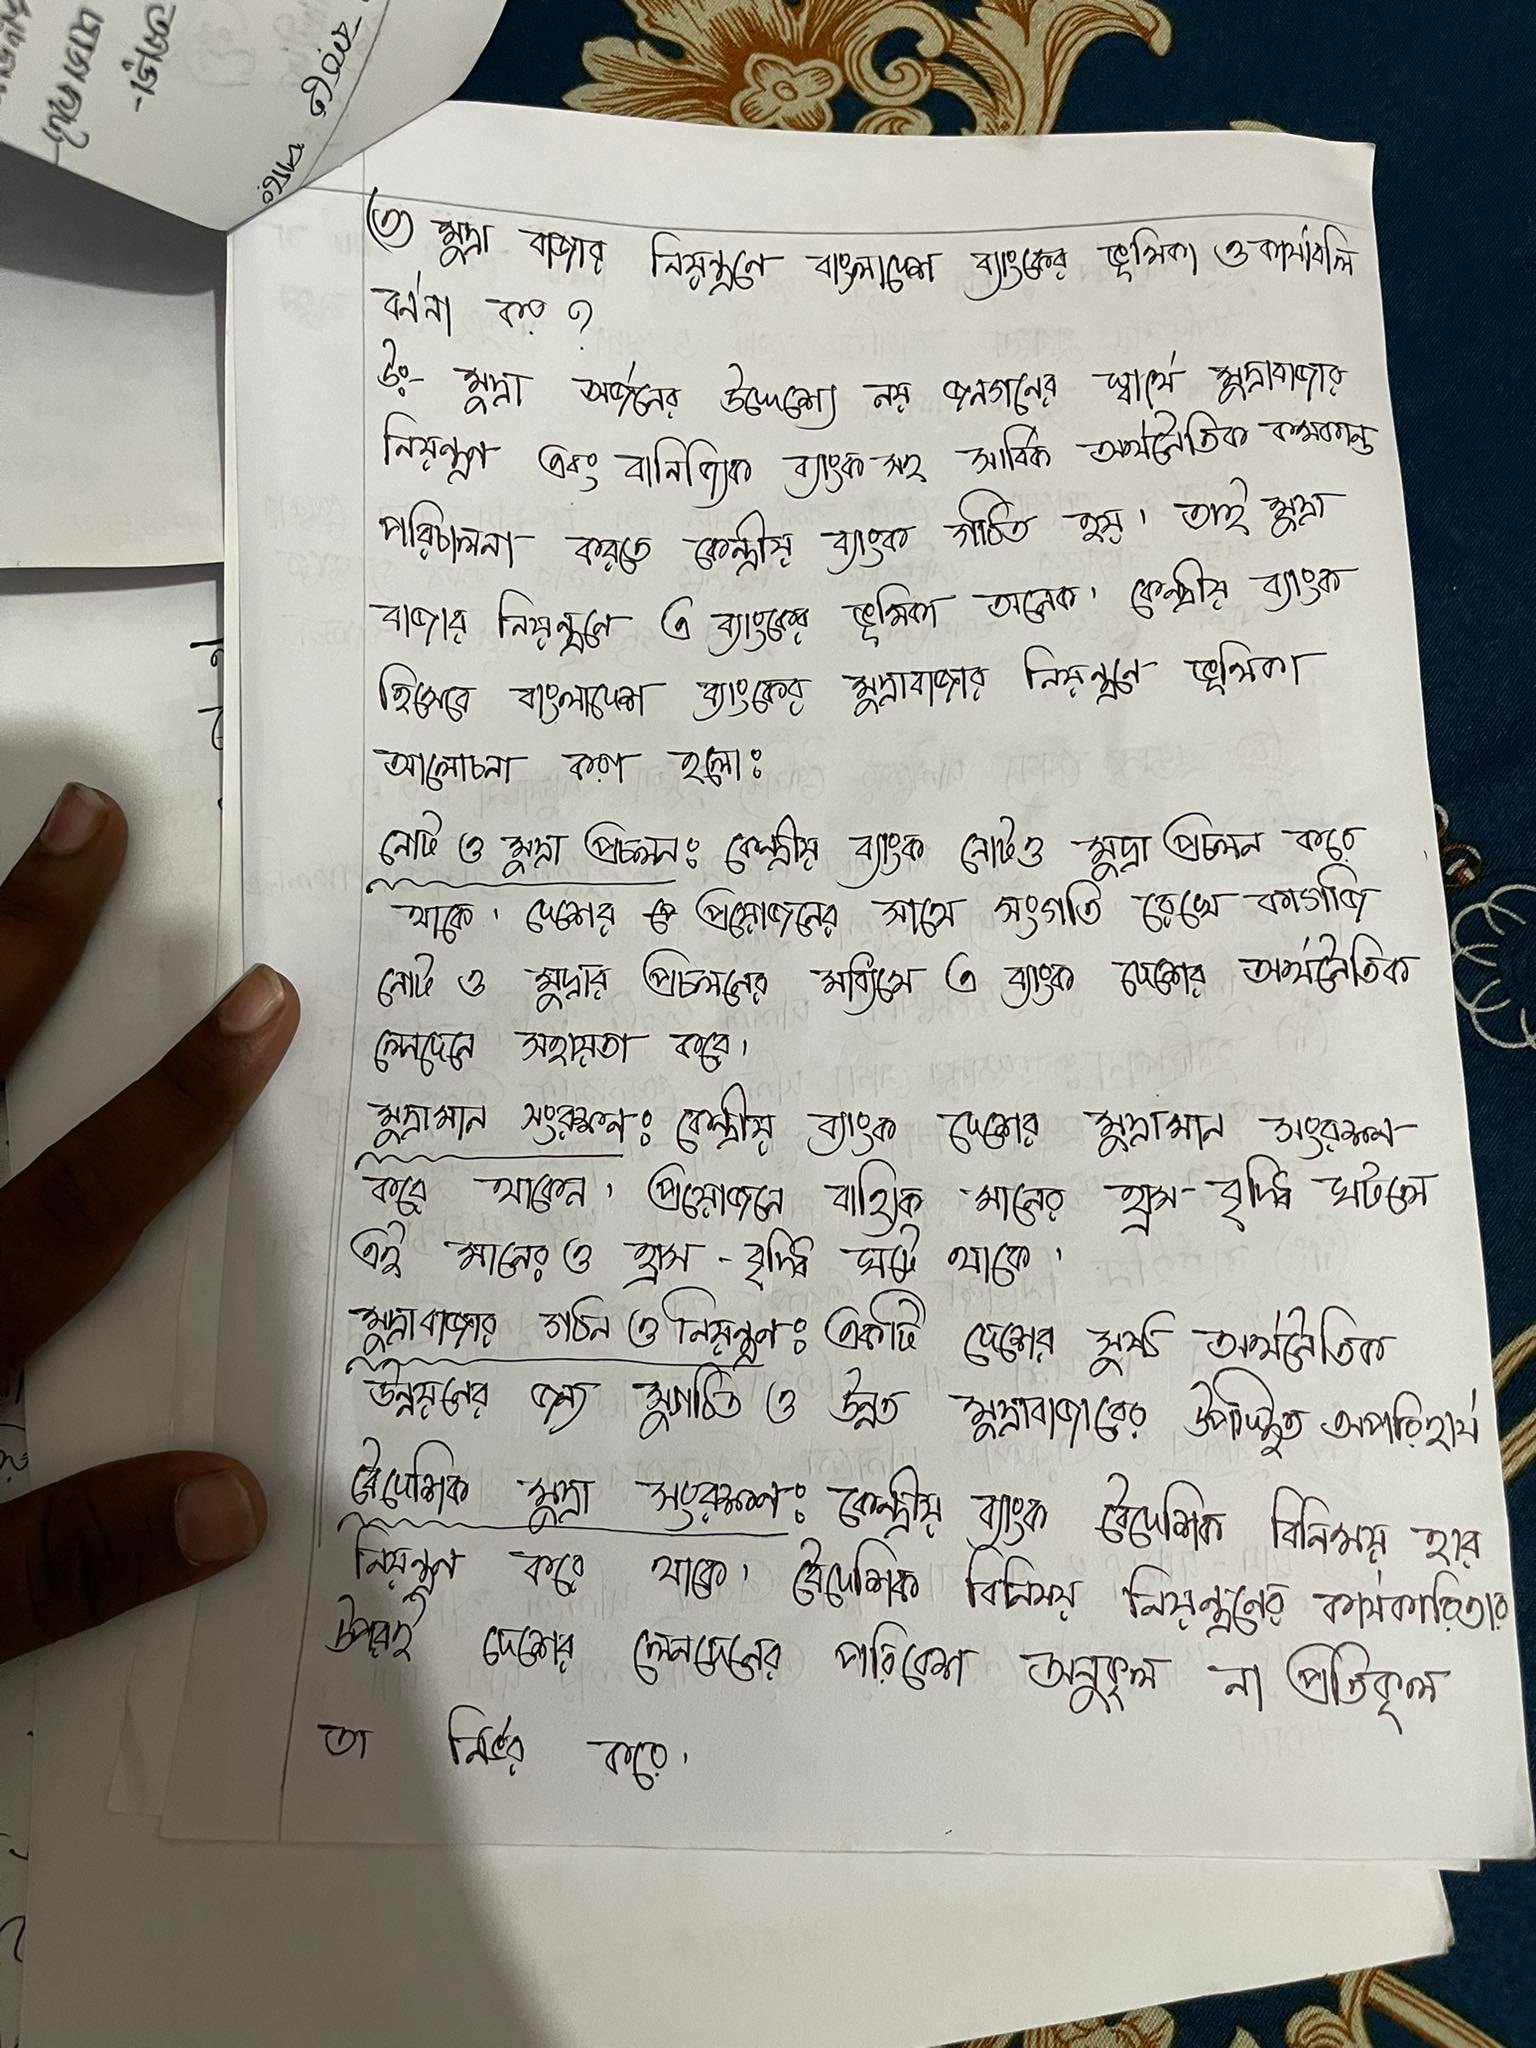 (৩) মুদ্রা বাজার নিয়ন্ত্রনে বাংলাদেশ ব্যাংকের ভূমিকা ও কার্যাবলি
বর্ননা কর ?
উঃ- মুদ্রা অর্জনের উদ্দেশ্যে নয় জনগনের স্বার্থে মুদ্রাবাজার
নিয়ন্ত্রণ এবং বানিজ্যিক ব্যাংক সহ সার্বিক অর্থনৈতিক কর্মকান্ড
পরিচালনা করতে কেন্দ্রীয় ব্যাংক গঠিত হয়। তাই মুদ্রা
বাজার নিয়ন্ত্রনে এ ব্যাংকের ভূমিকা অনেক। কেন্দ্রীয় ব্যাংক
হিসেবে বাংলাদেশ ব্যাংকের মুদ্রাবাজার নিয়ন্ত্রনে ভূমিকা
আলোচনা করা হলোঃ
নোট ও মুদ্রা প্রচলনঃ কেন্দ্রীয় ব্যাংক নোট ও মুদ্রা প্রচলন করে
থাকে। দেশের প্রয়োজনের সাথে সংগতি রেখে কাগজি
নোট ও মুদ্রার প্রচলনের মাধ্যিমে এ ব্যাংক দেশের অর্থনৈতিক
লেনদেনে সহায়তা করে।
মুদ্রামান সংরক্ষনঃ কেন্দ্রীয় ব্যাংক দেশের মুদ্রামান সংরক্ষন
করে থাকেন। প্রয়োজনে বাহ্যিক মানের হ্রাস-বৃদ্ধি ঘটলে
এই মানের ও হ্রাস - বৃদ্ধি ঘটে থাকে।
মুদ্রাবাজার গঠন ও নিয়ন্ত্রনঃ একটি দেশের সুষ্ঠ অর্থনৈতিক
উন্নয়নের জন্য সুগঠিত ও উন্নত মুদ্রাবাজারের উপস্থিত অপরিহার্য
বৈদেশিক মুদ্রা সংরক্ষনঃ কেন্দ্রীয় ব্যাংক বৈদেশিক বিনিময় হার
নিয়ন্ত্রন করে থাকে। বৈদেশিক বিনিময় নিয়ন্ত্রনের কার্যকারিতার
উপরই দেশের লেনদেনের পরিবেশ অনুকূল না প্রতিকূল
তা নির্ভর করে।